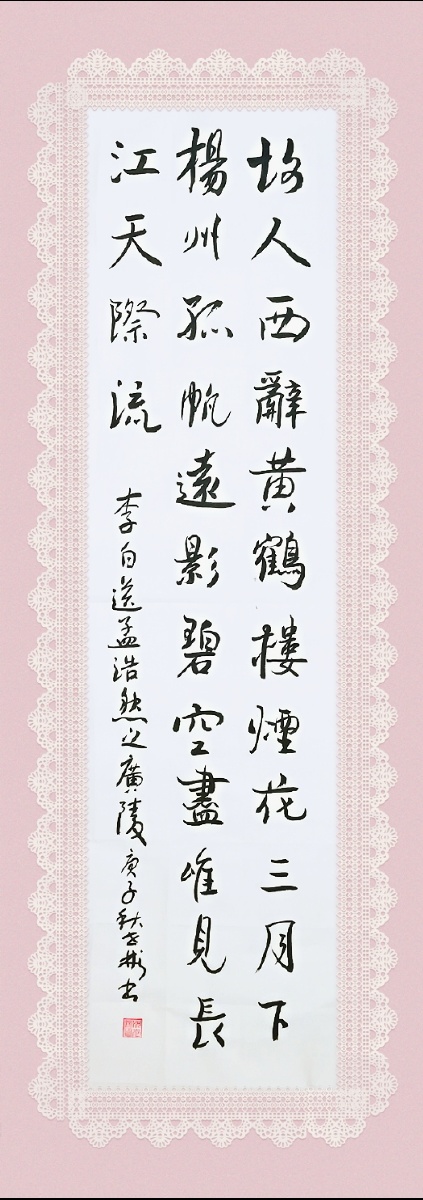 故人西辭黄鶴樓煙花三月下
楊州孤帆遠影碧空盡唯見長
江天際流
李白送孟浩然之廣陵 庚子秋 彬書